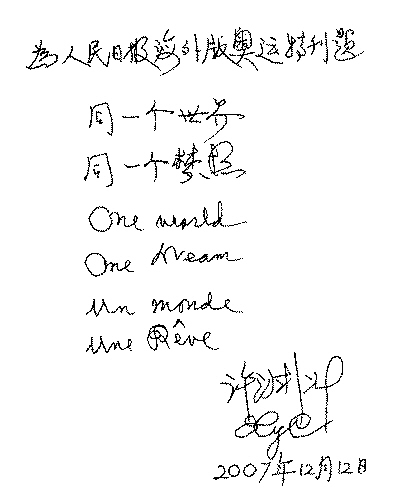 为人民日报海外版奥运特刊题
同一个世界
同一个梦想
One world
One dream
Un monde
Une Rêve
许渊冲
2007年12月12日